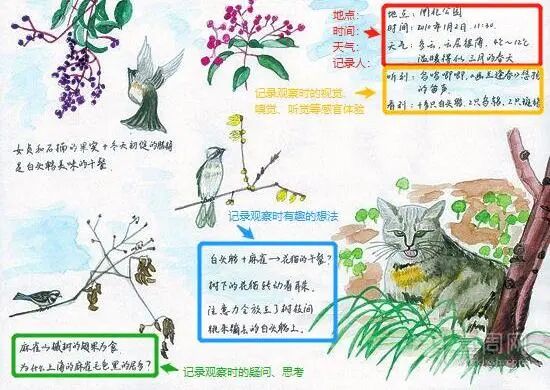 地点:
时间:
天气:
记录人:
地点: 闸北公园
时间: 2010年1月2日, 11:30
天气: 多云, 云层很薄, 4℃~12℃
温暖得似三月的春天
记录观察时的视觉、
嗅觉、听觉等感官体验
听到: 鸟鸣啾啾,
的笛声
看到: 十多只白头鹎, 2只乌鸫, 2只
女贞和石楠的果实+冬天初绽的腊梅
是白头鹎美味的午餐
记录观察时有趣的想法
白头鹎+麻雀→花猫的午餐?
树下的花猫转动着耳朵
注意力全放在了树枝间
跳来蹦去的白头鹎上。
麻雀以槭树的翅果为食
为什么上海的麻雀毛色黑的居多?
记录观察时的疑问、思考